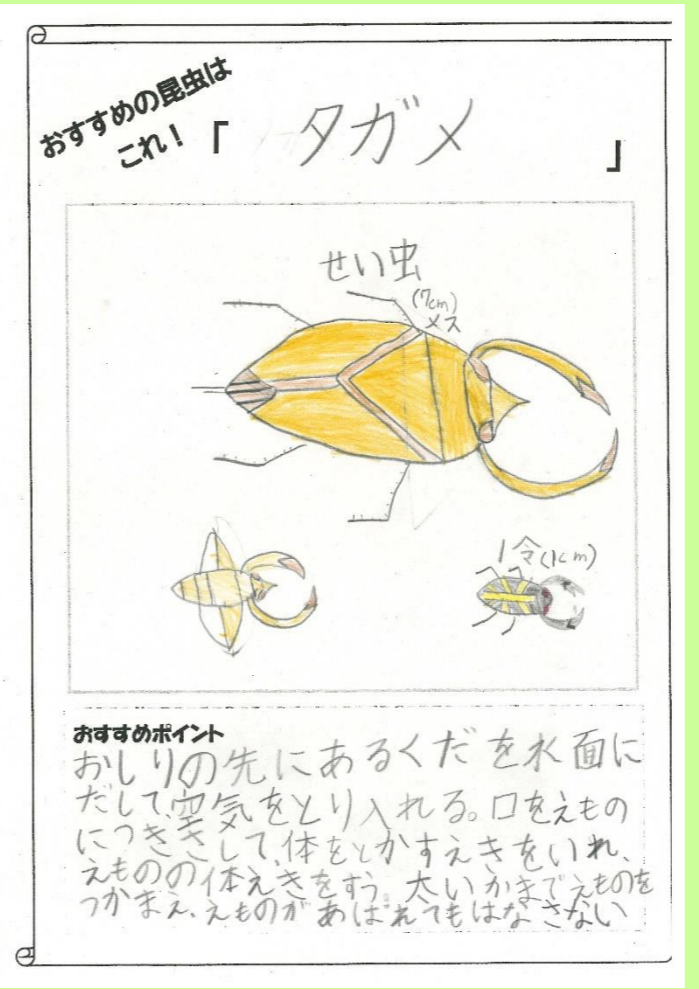 おすすめの昆虫は
これ！「 タガメ 」
せい虫
(7cm)
メス
1令(1cm)
おすすめポイント
おしりの先にあるくだを水面に
だして、空気をとり入れる。口をえもの
につきさして、体をとかすえきをいれ、
えものの体えきをすう。太いかまでえものを
つかまえ、えものがあばれてもはなさない